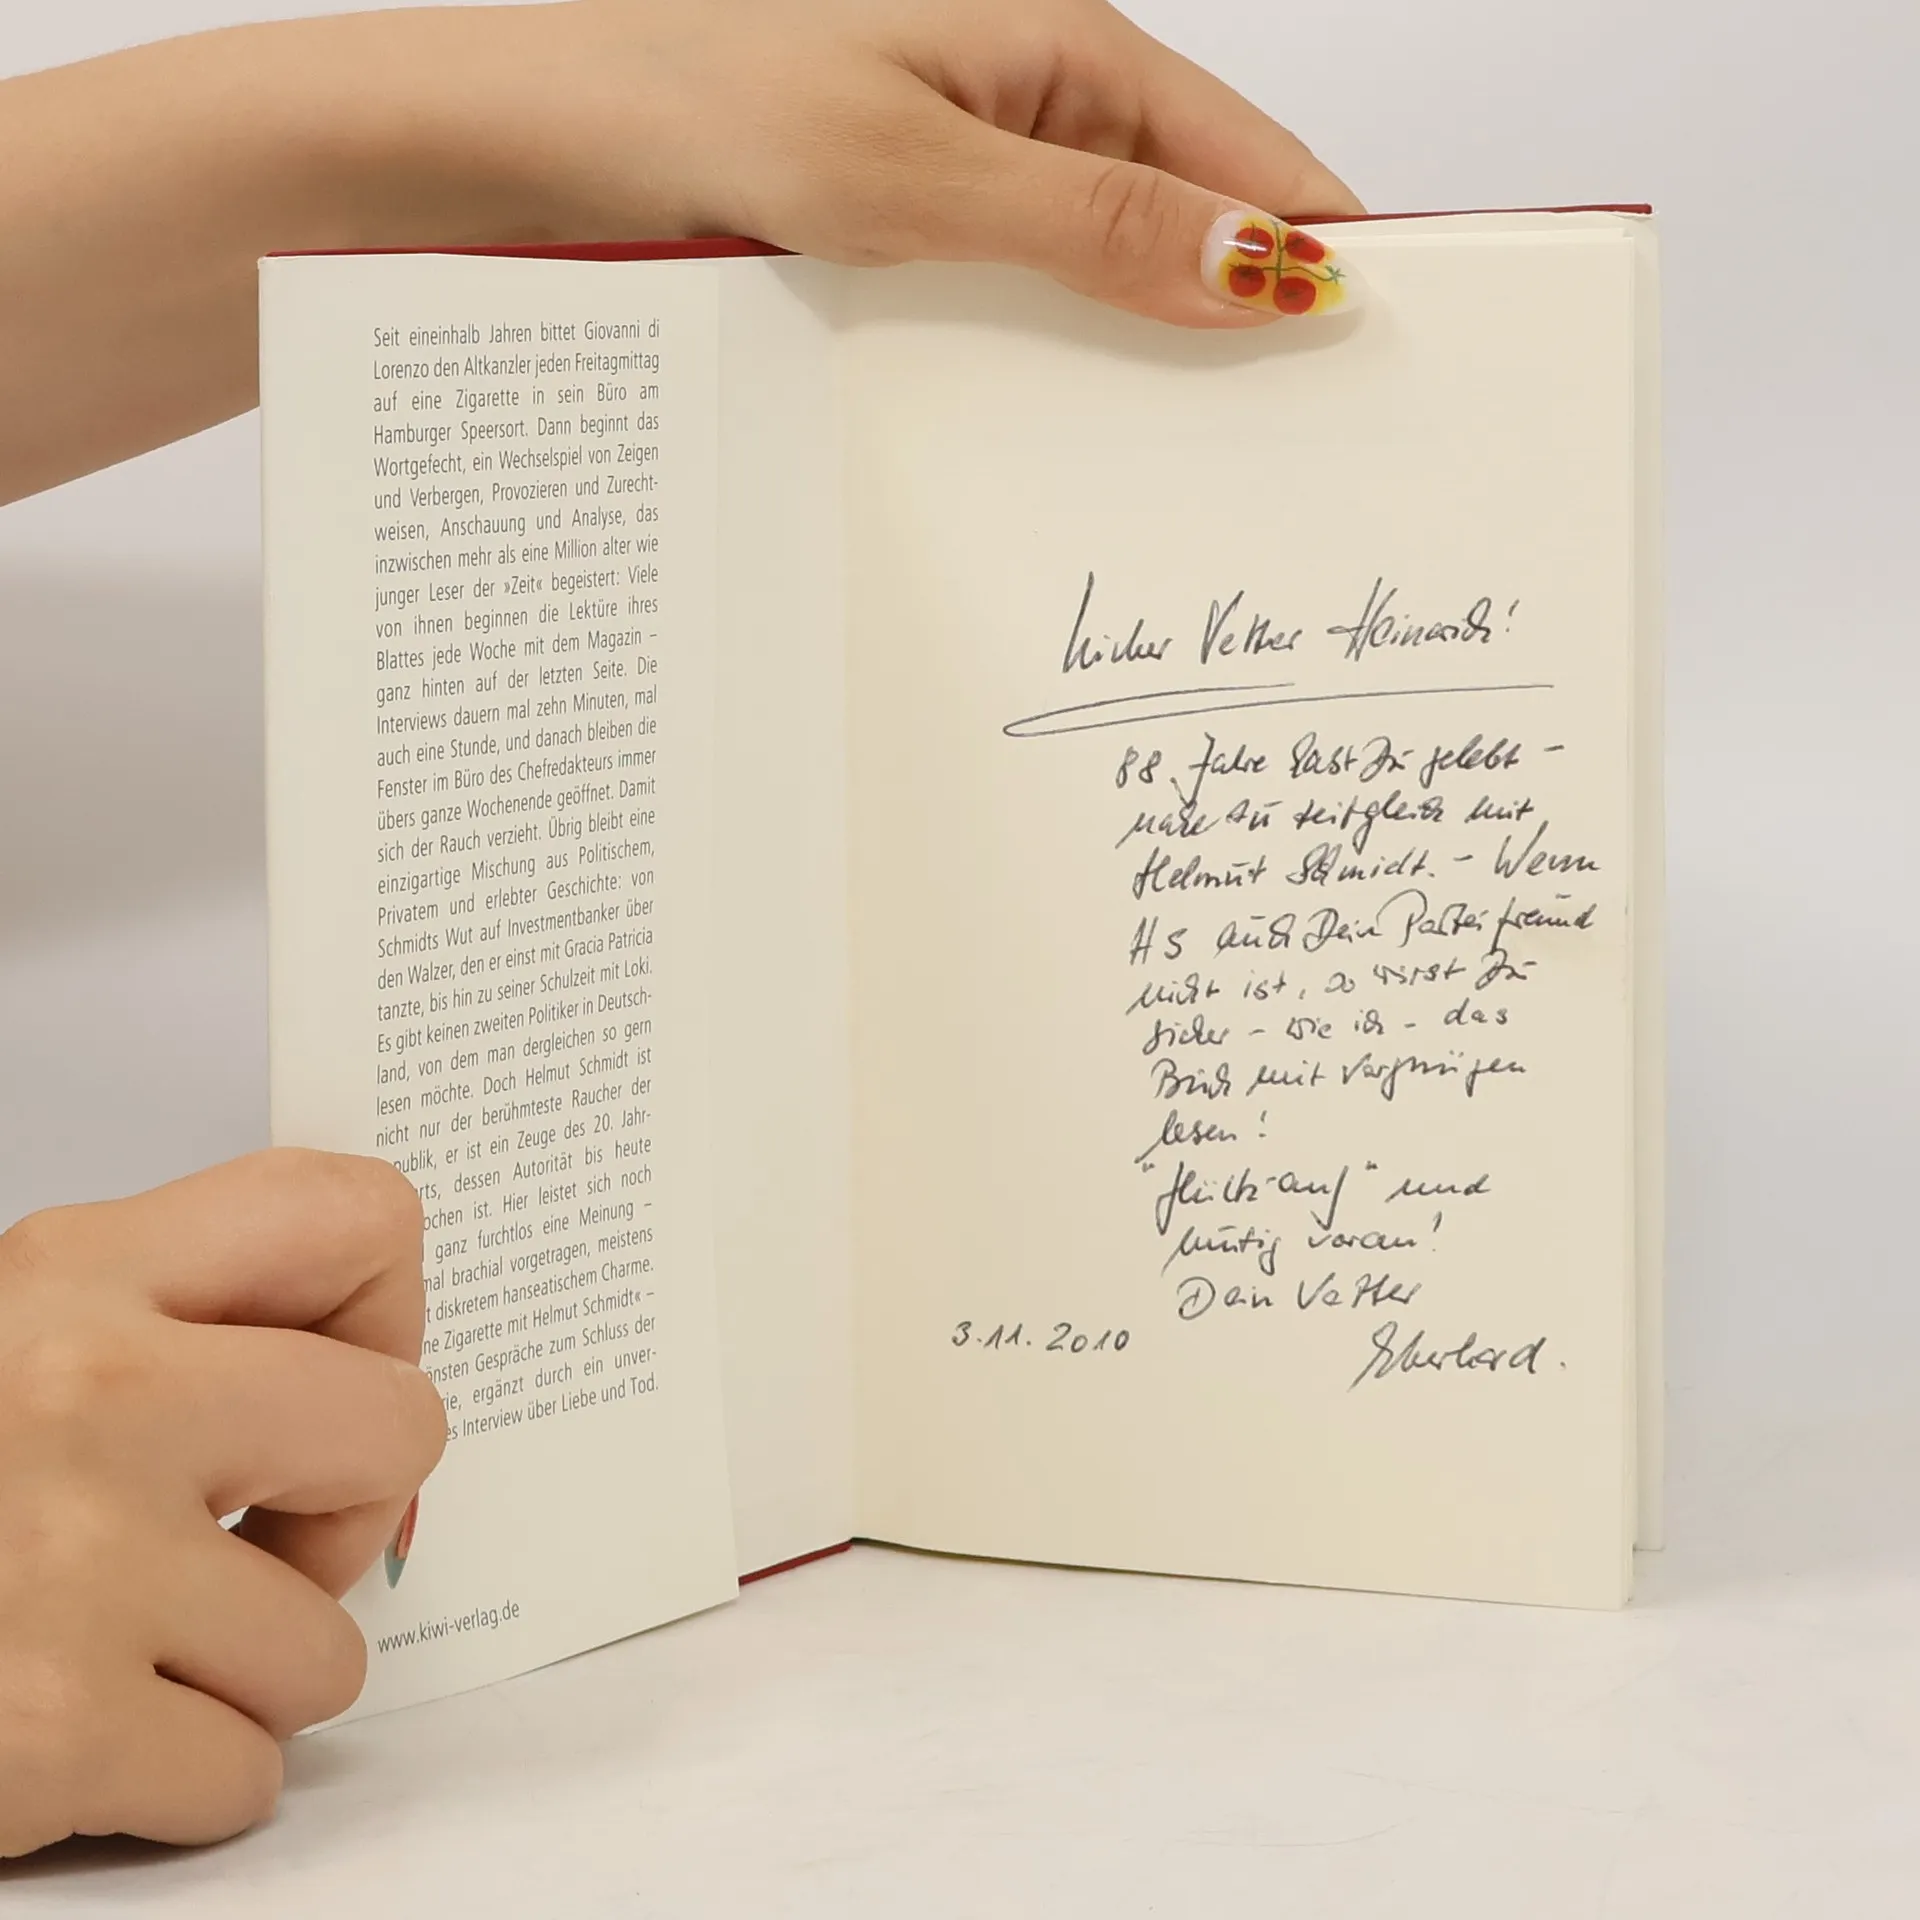 Seit eineinhalb Jahren bittet Giovanni di
Lorenzo den Altkanzler jeden Freitagmittag
auf eine Zigarette in sein Büro am
Hamburger Speersort. Dann beginnt das
Wortgefecht, ein Wechselspiel von Zeigen
und Verbergen, Provozieren und Zurecht-
weisen, Anschauung und Analyse, das
inzwischen mehr als eine Million alter wie
junger Leser der »Zeit« begeistert: Viele
von ihnen beginnen die Lektüre ihres
Blattes jede Woche mit dem Magazin –
ganz hinten auf der letzten Seite. Die
Interviews dauern mal zehn Minuten, mal
auch eine Stunde, und danach bleiben die
Fenster im Büro des Chefredakteurs immer
übers ganze Wochenende geöffnet. Damit
sich der Rauch verzieht. Übrig bleibt eine
einzigartige Mischung aus Politischem,
Privatem und erlebter Geschichte: von
Schmidts Wut auf Investmentbanker über
den Walzer, den er einst mit Gracia Patricia
tanzte, bis hin zu seiner Schulzeit mit Loki.
Es gibt keinen zweiten Politiker in Deutsch-
land, von dem man dergleichen so gern
lesen möchte. Doch Helmut Schmidt ist
nicht nur der berühmteste Raucher der
publik, er ist ein Zeuge des 20. Jahr-
rts, dessen Autorität bis heute
ochen ist. Hier leistet sich noch
ganz furchtlos eine Meinung –
mal brachial vorgetragen, meistens
t diskretem hanseatischem Charme.
ne Zigarette mit Helmut Schmidt« –
önsten Gespräche zum Schluss der
rie, ergänzt durch ein unver-
es Interview über Liebe und Tod.
www.kiwi-verlag.de
Lieber Vetter Heinrich!
88 Jahre hast Du gelebt –
nahezu zeitgleich mit
Helmut Schmidt. – Wenn
HS auch Dein Parteifreund
nicht ist, so wirst Du
sicher – wie ich – das
Buch mit Vergnügen
lesen!
"Glück-auf" und
mutig voran!
Dein Vetter
3.11.2010
Eberhard.